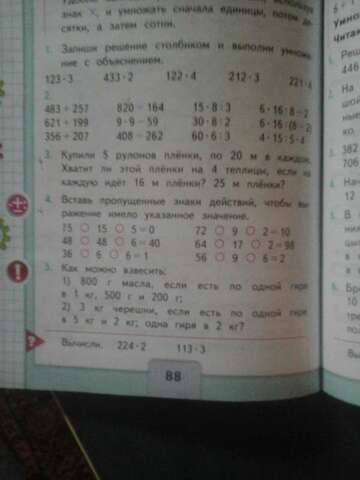 знак ×, и умножать сначала единицы, потом де-
сятки, а затем сотни.
1. Запиши решение столбиком и выполни умноже-
ние с объяснением.
123·3 433·2 122·4 212·3 221·4
2.
483 + 257 820 − 164 15·8:3 6·16:8
621 + 199 9·9 − 59 30·8:2 6·16:(8
356 + 207 408 − 262 60·6:3 4·15:5·4
3. Купили 5 рулонов плёнки, по 20 м в каждом.
Хватит ли этой плёнки на 4 теплицы, если на
каждую идёт 16 м плёнки? 25 м плёнки?
4. Вставь пропущенные знаки действий, чтобы вы-
ражение имело указанное значение.
75 ○ 15 ○ 5 = 0 72 ○ 9 ○ 2 = 10
48 ○ 48 ○ 6 = 40 64 ○ 17 ○ 2 = 98
36 ○ 6 ○ 6 = 1 56 ○ 9 ○ 6 = 2
5. Как можно взвесить:
1) 800 г масла, если есть по одной гире
в 1 кг, 500 г и 200 г;
2) 3 кг черешни, если есть по одной гире
в 5 кг и 2 кг; одна гиря в 2 кг?
Вычисли. 224·2 113·3
88